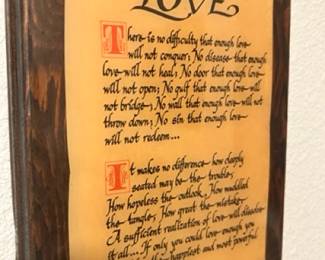 LOVE
There is no difficulty that enough love
will not conquer; No disease that enough
love will not heal; No door that enough love
will not open; No gulf that enough love will
not bridge; No wall that enough love will not
throw down; No sin that enough love
will not redeem...
It makes no difference how deeply
seated may be the trouble;
How hopeless the outlook, How muddled
the tangle, How great the mistake.
A sufficient realization of love will dissolve
it all... If only you could love enough you
happiest and most powerful